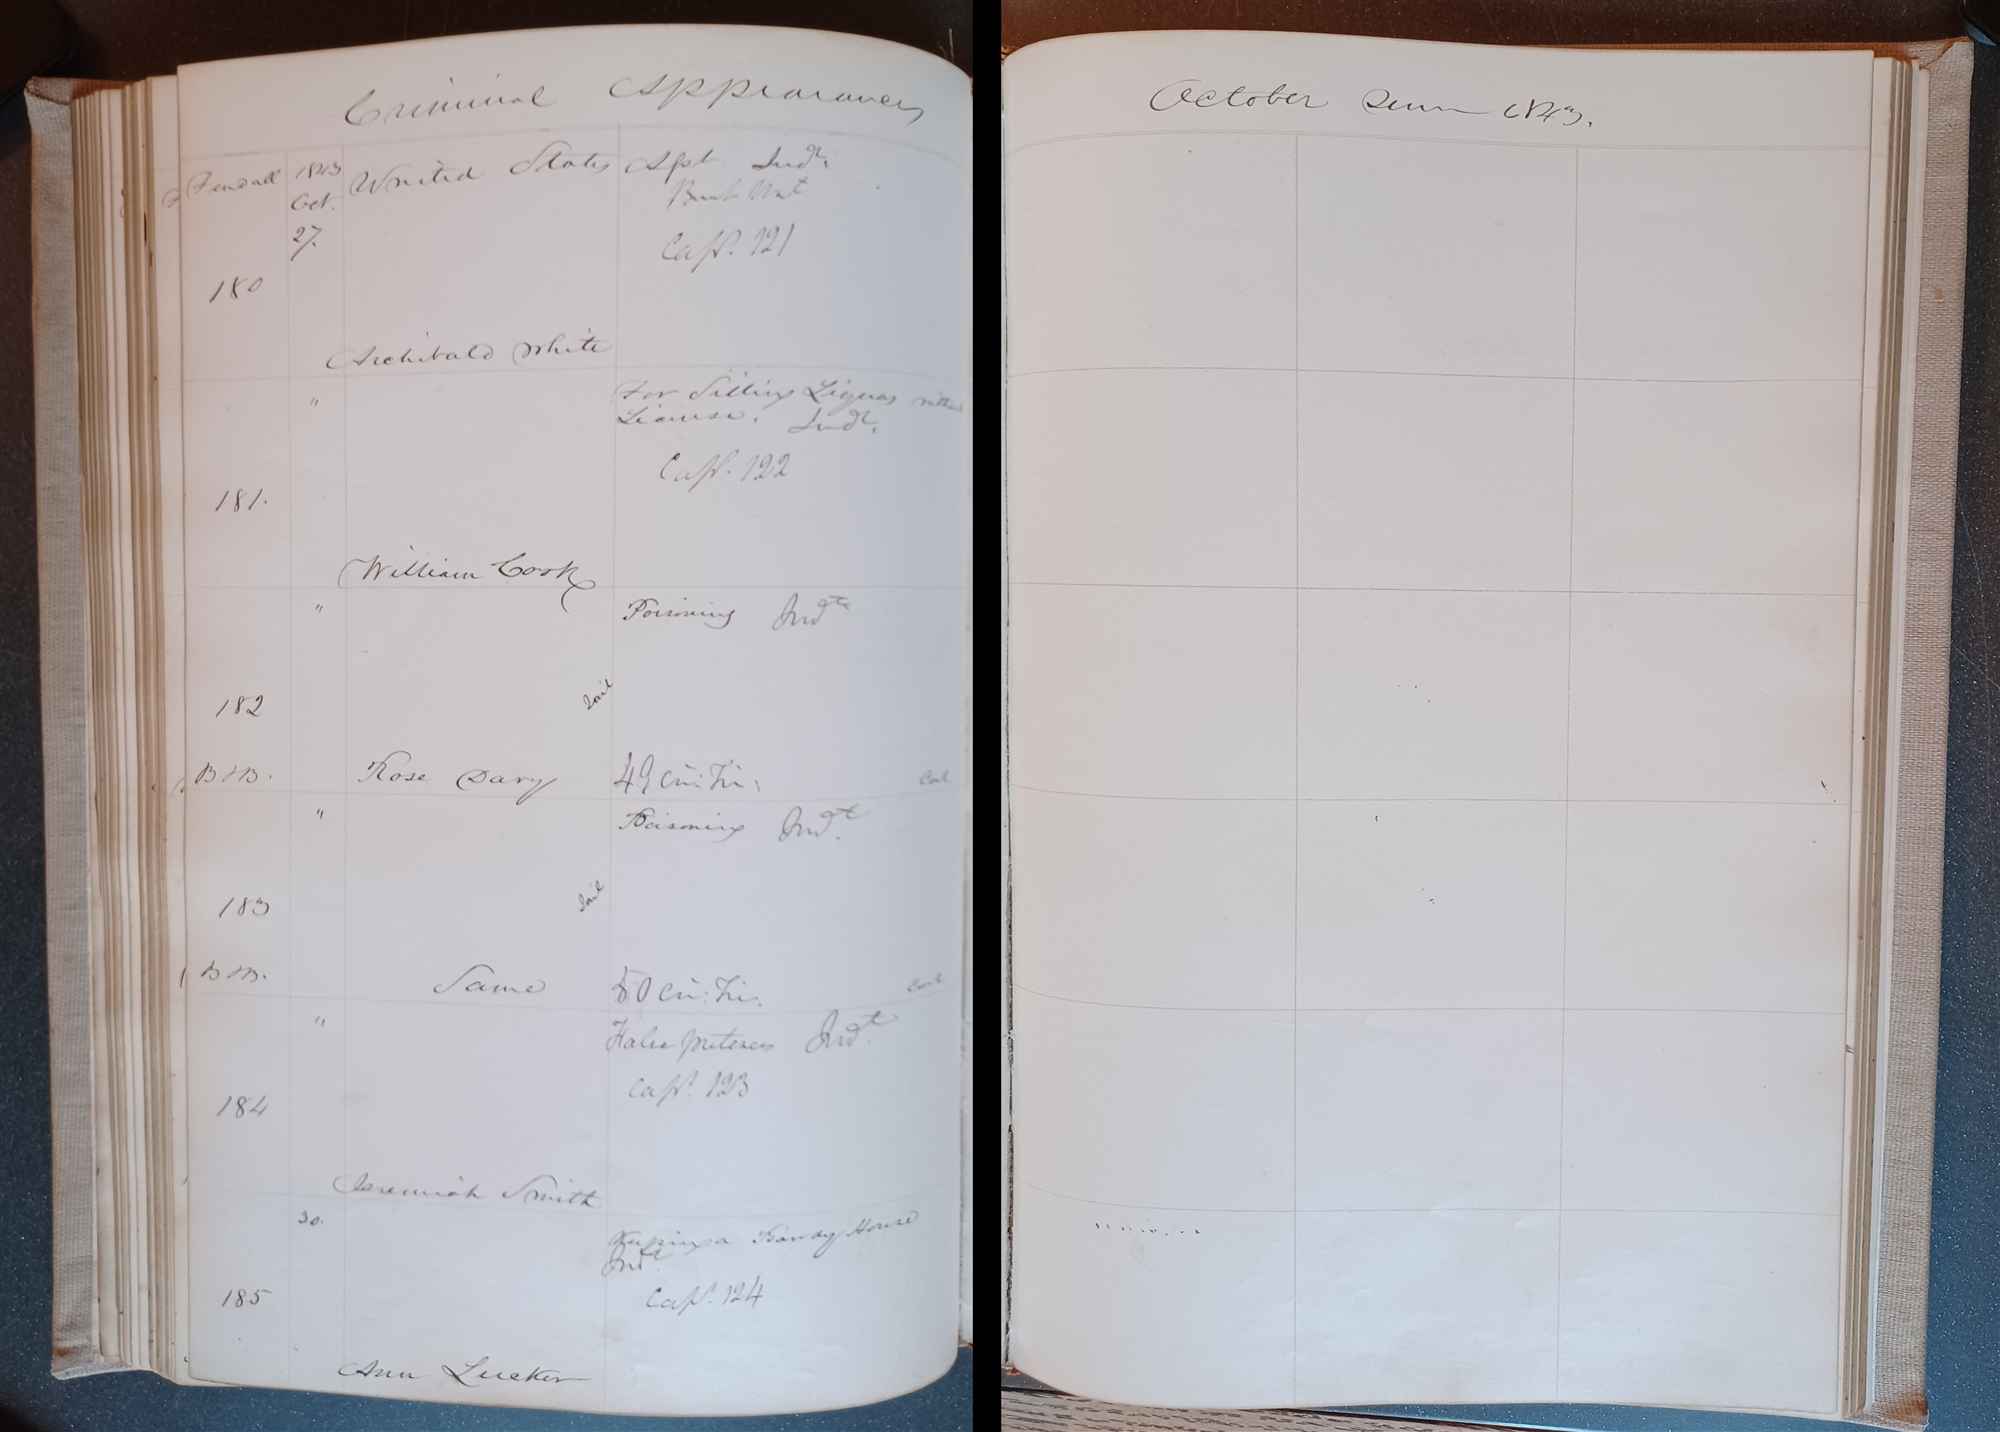 Criminal Appearances
Fendall 1843 United States Aslt. Indt.
Oct. Bench Wnt
27. Cap. 121
180
Archibald White
" For Selling Liquors without
License. Indt.
Cap. 122
181.
William Cook
" Poisoning Indt
182 Jail
B & B. Rose Davy 49 cri: Tri:
" Poisoning Indt.
183 Jail
B & B. Same 50 cri: Tri.
" False pretences Indt.
Cap. 123
184
Jeremiah Smith
30. Keeping a Bawdy House
Indt.
185 Cap. 124
Ann Tucker
October Term 1843.